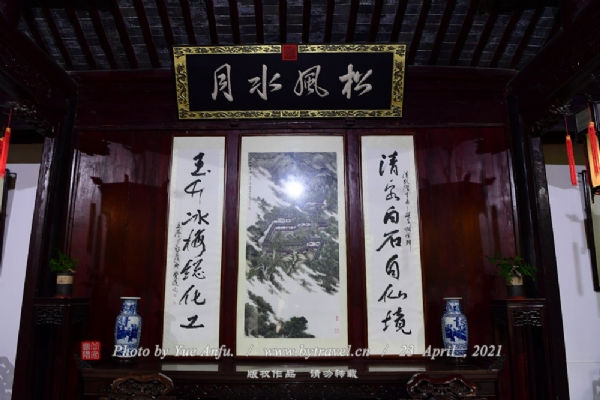 松風水月
清泉白石自仙境
玉竹冰梅總化工
Photo by Yue Anfu. / www.bytravel.cn / 23 April , 2021
版权作品 请勿转载